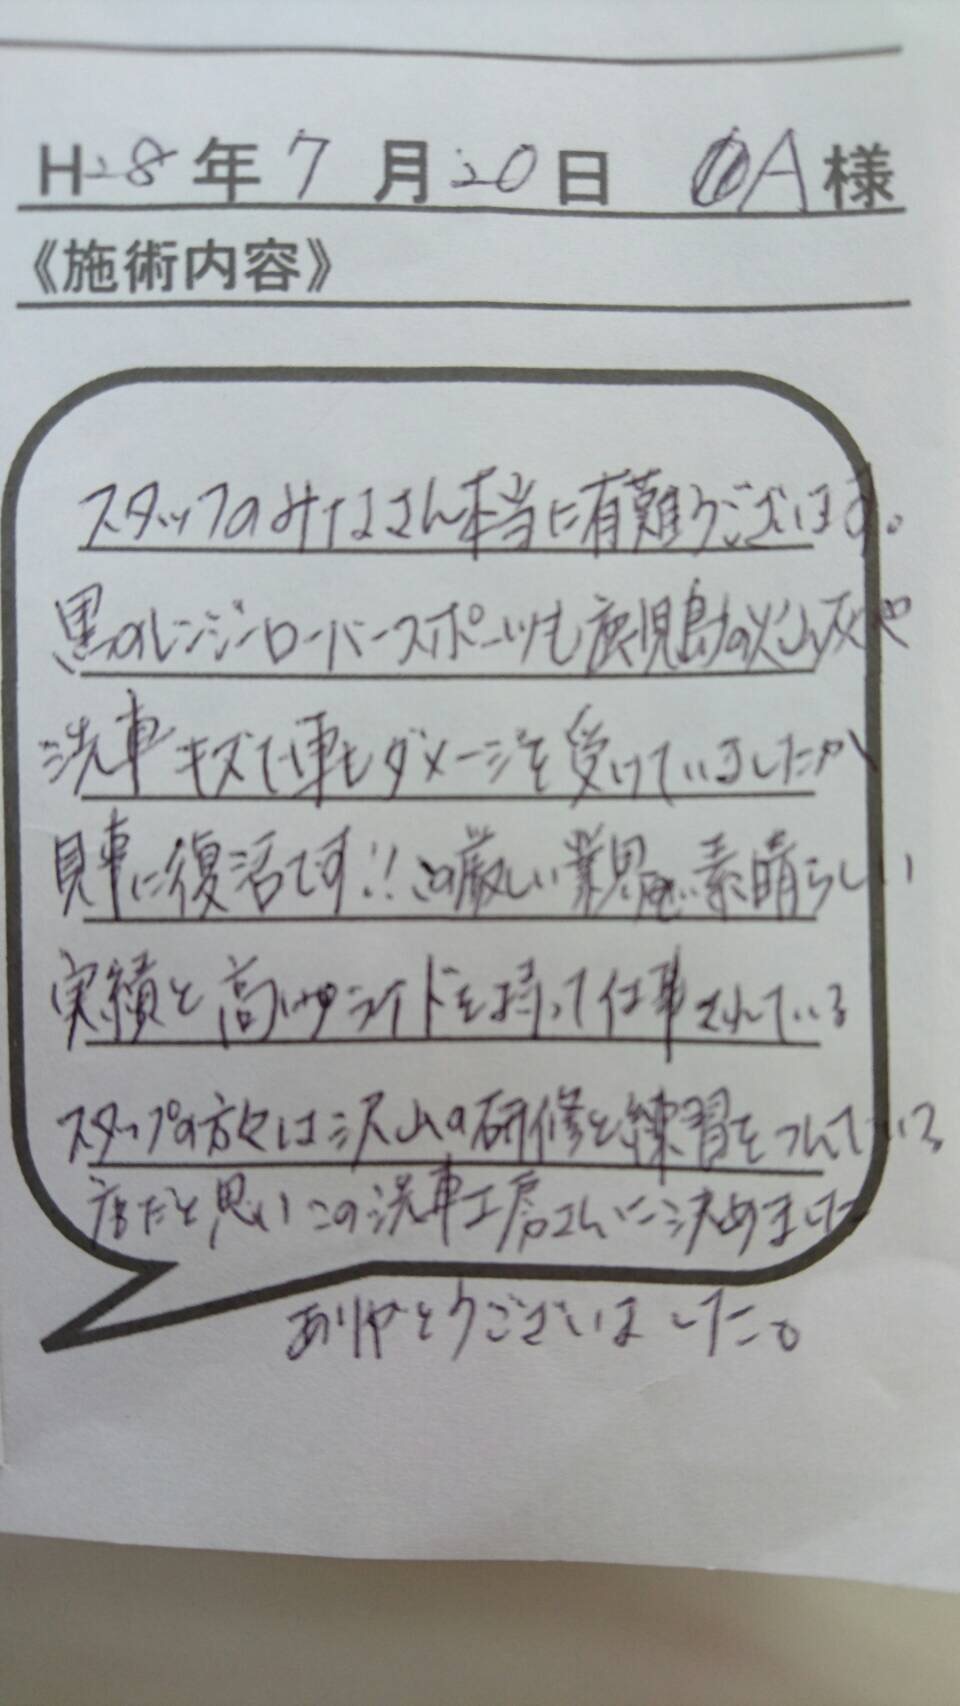 H28年7月20日 A様
《施術内容》
スタッフのみなさん本当に有難うございます。
黒のレンジローバースポーツも鹿児島の火山灰や
洗車キズで車もダメージを受けていましたが
見事に復活です!!この厳しい業界で素晴らしい
実績と高いプライドを持って仕事されている
スタッフの方々は沢山の研修と練習をつんでいる
店だと思いこの洗車工房さんに決めました
ありがとうございました。